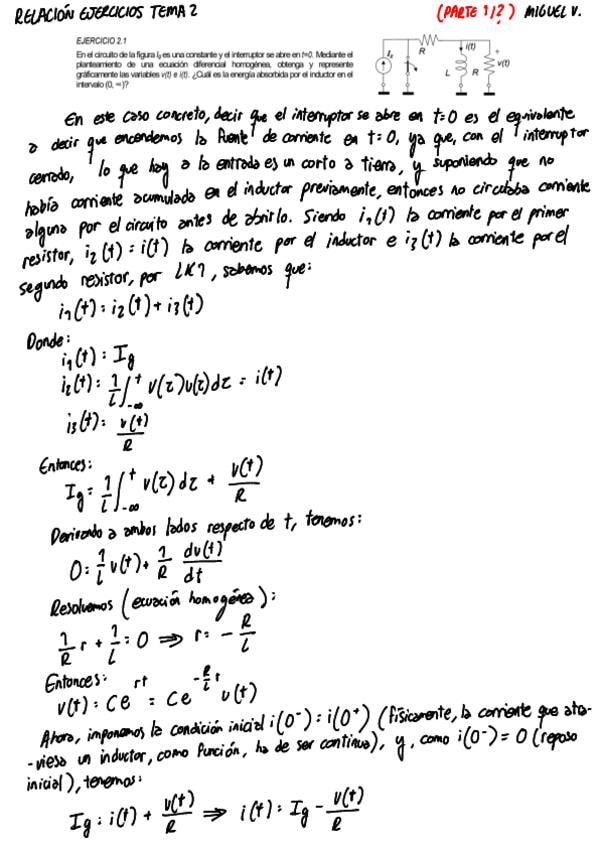 RELACIÓN EJERCICIOS TEMA 2
(PARTE 1/?) MIGUEL V.
EJERCICIO 2.1
En el circuito de la figura Ig es una constante y el interruptor se abre en t=0. Mediante el
planteamiento de una ecuación diferencial homogénea, obtenga y represente
gráficamente las variables v(t) e i(t). ¿Cuál es la energía absorbida por el inductor en el
intervalo (0, ∞)?
Ig
R
i(t)
L
R
+
v(t)
-
En este caso concreto, decir que el interruptor se abre en t=0 es el equivalente
a decir que encendemos la fuente de corriente en t=0, ya que, con el interruptor
cerrado, lo que hay a la entrada es un corto a tierra, y suponiendo que no
había corriente acumulada en el inductor previamente, entonces no circulaba corriente
alguna por el circuito antes de abrirlo. Siendo i₁(t) la corriente por el primer
resistor, i₂(t) = i(t) la corriente por el inductor e i₃(t) la corriente por el
segundo resistor, por LK1, sabemos que:
i₁(t) = i₂(t) + i₃(t)
Donde:
i₁(t) = Ig
i₂(t) = 1/L ∫_{-∞}^{t} v(τ)u(τ)dτ = i(t)
i₃(t) = v(t)/R
Entonces:
Ig = 1/L ∫_{-∞}^{t} v(τ)dτ + v(t)/R
Derivando a ambos lados respecto de t, tenemos:
0 = 1/L v(t) + 1/R dv(t)/dt
Resolvemos (ecuación homogénea):
1/R r + 1/L = 0 ⇒ r = -R/L
Entonces:
v(t) = Ce^{rt} = Ce^{-R/L t} u(t)
Ahora, imponemos la condición inicial i(0⁻) = i(0⁺) (físicamente, la corriente que atra-
-viesa un inductor, como función, ha de ser continua), y, como i(0⁻) = 0 (reposo
inicial), tenemos:
Ig = i(t) + v(t)/R ⇒ i(t) = Ig - v(t)/R